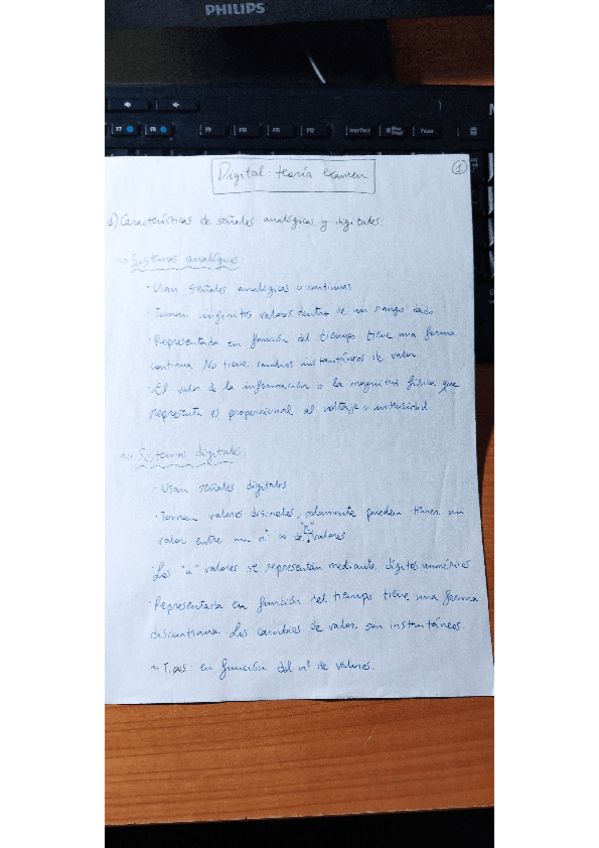 PHILIPS
F7
F8
F9
F10
F11
F12
ImprPant
Bloq
Pausa
Digital: teoría examen
1
1) Características de señales analógicas y digitales:
Sistemas analógicos:
· Usan señales analógicas o continuas
· Toman infinitos valores dentro de un rango dado
· Representada en función del tiempo tiene una forma
continua. No tiene cambios instantáneos de valor
· El valor de la información o la magnitud física que
representa es proporcional al voltaje o intensidad
Sistemas digitales:
· Usan señales digitales
· Toman valores discretos, solamente pueden tener un
valor entre un nº de "n" valores
· Los "n" valores se representan mediante dígitos numéricos
· Representada en función del tiempo tiene una forma
discontinua. Los cambios de valor son instantáneos.
~ Tipos: en función del nº de valores.